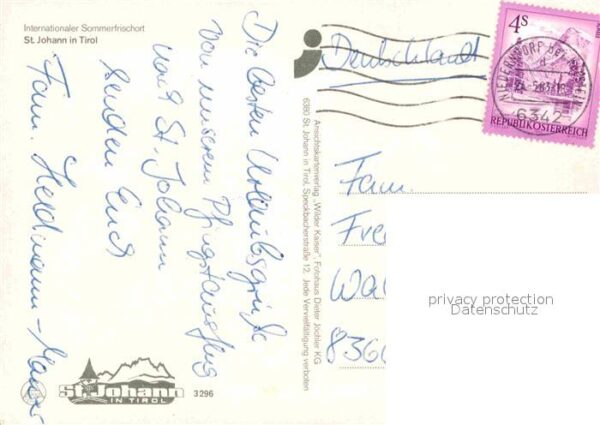 Internationaler Sommerfrischort
St. Johann in Tirol
Die besten Urlaubsgrüße
von unserem Pfingstausflug
nach St. Johann
senden Euch
Fam.
Ansichtskartenverlag „Wilder Kaiser“, Fotohaus Dieter Jöchler KG
6380 St. Johann in Tirol, Speckbacherstraße 12, Jede Vervielfältigung verboten
Deutschland
4S
REPUBLIK ÖSTERREICH
6342
Fam.
Fre
Wal
836
privacy protection
Datenschutz
St. Johann
IN TIROL
3296